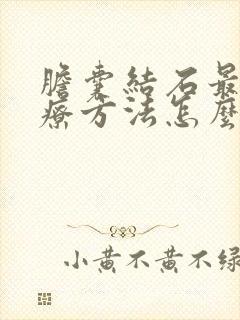 膽囊結石最
療方法怎麼
小黃不黃不綠